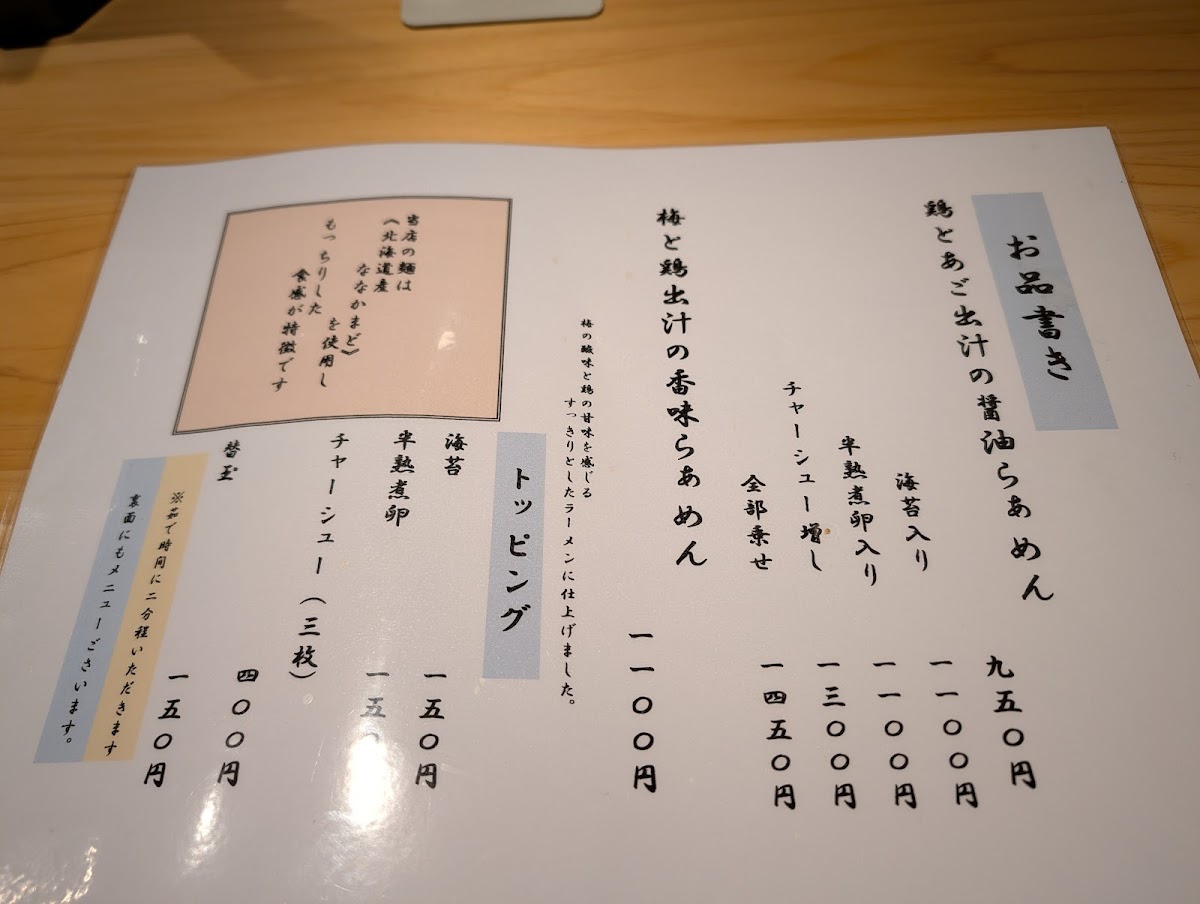 お品書き
鶏とあご出汁の醤油らあめん 九五〇円
海苔入り 一一〇〇円
半熟煮卵入り 一一〇〇円
チャーシュー増し 一三〇〇円
全部乗せ 一四五〇円
梅と鶏出汁の香味らあめん 一一〇〇円
梅の酸味と鶏の甘味を感じる
すっきりとしたラーメンに仕上げました。
トッピング
海苔 一五〇円
半熟煮卵 一五〇
チャーシュー(三枚) 四〇〇円
替玉 一五〇円
当店の麺は
《北海道産
ななかまど》
を使用し
もっちりした
食感が特徴です
※茹で時間に二分程いただきます
裏面にもメニューございます。